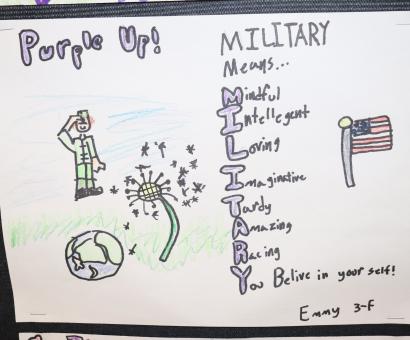 Purple Up!
MILITARY
Means...
Mindful
Intellegent
Loving
Imaginitive
Tardy
Amazing
Racing
You Belive in your self!
Emmy 3-F